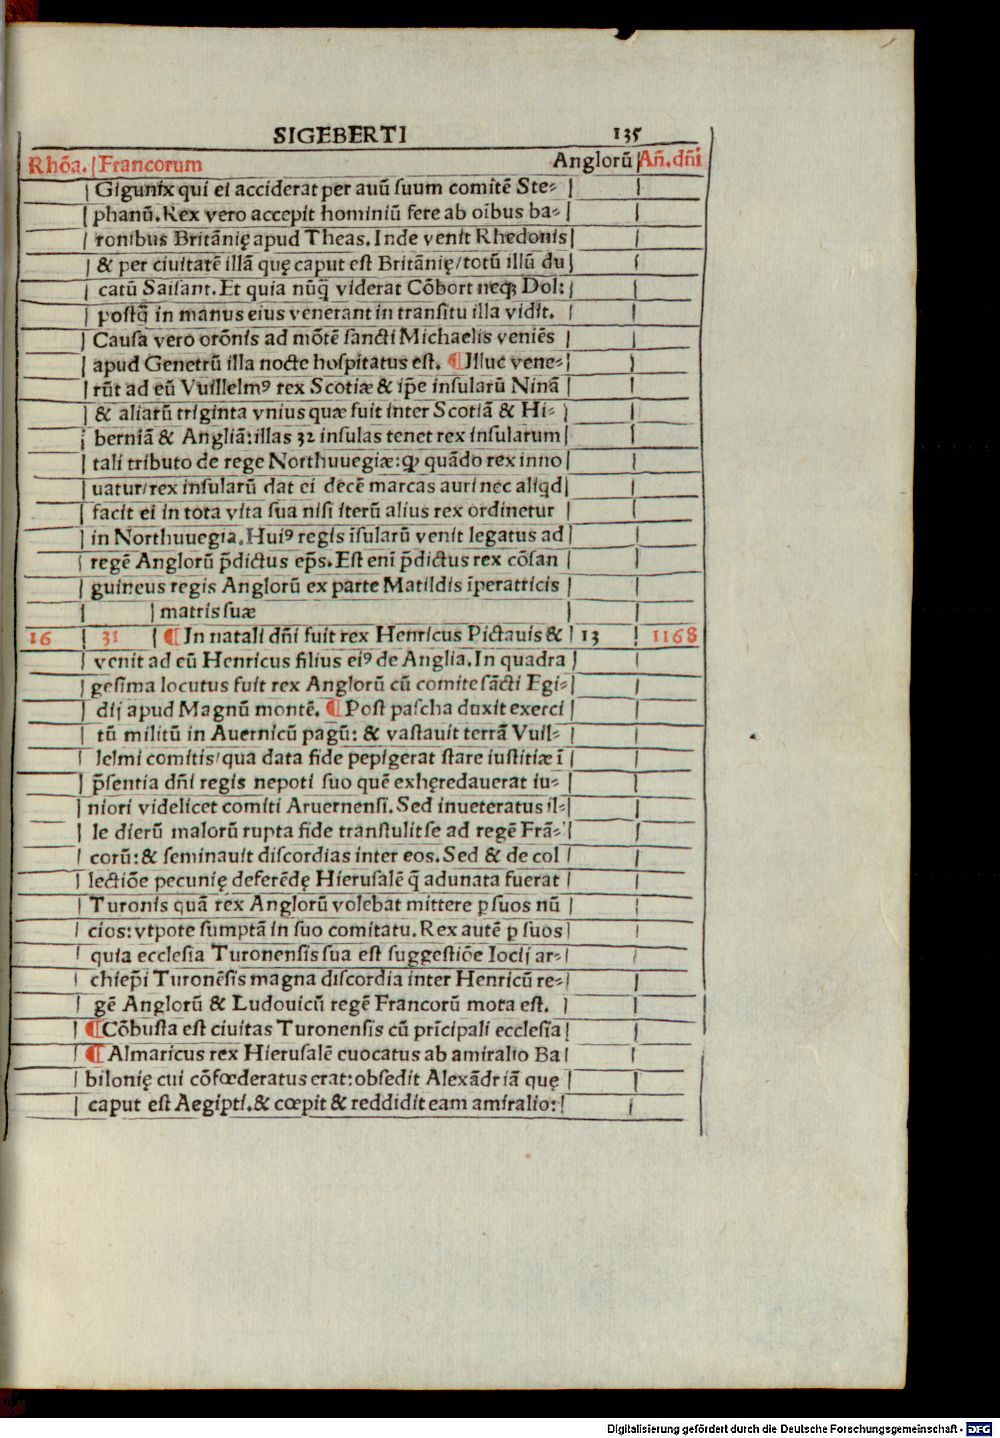 SIGEBERTI 135
Rhõa. Francorum Anglorũ Añ.dñi
Gigunix qui ei acciderat per auũ suum comitẽ Ste⸗
phanũ. Rex vero accepit hominiũ fere ab oibus ba⸗
ronibus Britãnię apud Theas. Inde venit Rhedonis
& per ciuitatẽ illã quę caput est Britãnię/totũ illũ du
catũ Saisant. Et quia nũq̃ viderat Cõbort neqꝫ Dol:
postq̃ in manus eius venerant in transitu illa vidit.
Causa vero orõnis ad mõtẽ sancti Michaelis veniẽs
apud Genetrũ illa nocte hospitatus est. ¶Illuc vene⸗
rũt ad eũ Vuillelmꝰ rex Scotiæ & ip̃e insularũ Ninã
& aliarũ triginta vnius quæ fuit inter Scotiã & Hi⸗
berniã & Angliã: illas 32 insulas tenet rex insularum
tali tributo de rege Northuuegiæ: ꝙ quãdo rex inno
uatur/rex insularũ dat ei decẽ marcas auri nec aliqd
facit ei in tota vita sua nisi iterũ alius rex ordinetur
in Northuuegia. Huiꝰ regis ĩsularũ venit legatus ad
regẽ Anglorũ p̃dictus ep̃s. Est enĩ p̃dictus rex cõsan
guineus regis Anglorũ ex parte Matildis ĩperatricis
matris suæ
16 31 ¶In natali dñi fuit rex Henricus Pictauis & 13 1168
venit ad eũ Henricus filius eiꝰ de Anglia. In quadra
gesima locutus fuit rex Anglorũ cũ comite sãcti Egi⸗
dij apud Magnũ montẽ. ¶Post pascha duxit exerci
tũ militũ in Auernicũ pagũ: & vastauit terrã Vuil⸗
lelmi comitis/qua data fide pepigerat stare iustitiæ ĩ
p̃sentia dñi regis nepoti suo quẽ exhęredauerat iu⸗
niori videlicet comiti Aruernensi. Sed inueteratus il⸗
le dierũ malorũ rupta fide transtulit se ad regẽ Frã⸗
corũ: & seminauit discordias inter eos. Sed & de col
lectiõe pecunię deferẽdę Hierusalẽ q̃ adunata fuerat
Turonis quã rex Anglorũ volebat mittere p suos nũ
cios: vtpote sumptã in suo comitatu. Rex autẽ p suos
quia ecclesia Turonensis sua est suggestiõe Iocij ar⸗
chiep̃i Turonẽsis magna discordia inter Henricũ re⸗
gẽ Anglorũ & Ludouicũ regẽ Francorũ mota est.
¶Cõbusta est ciuitas Turonensis cũ prĩcipali ecclesia
¶Almaricus rex Hierusalẽ euocatus ab amiralio Ba
bilonię cui cõfœderatus erat: obsedit Alexãdriã quę
caput est Aegipti. & cœpit & reddidit eam amiralio:
Digitalisierung gefördert durch die Deutsche Forschungsgemeinschaft - DFG